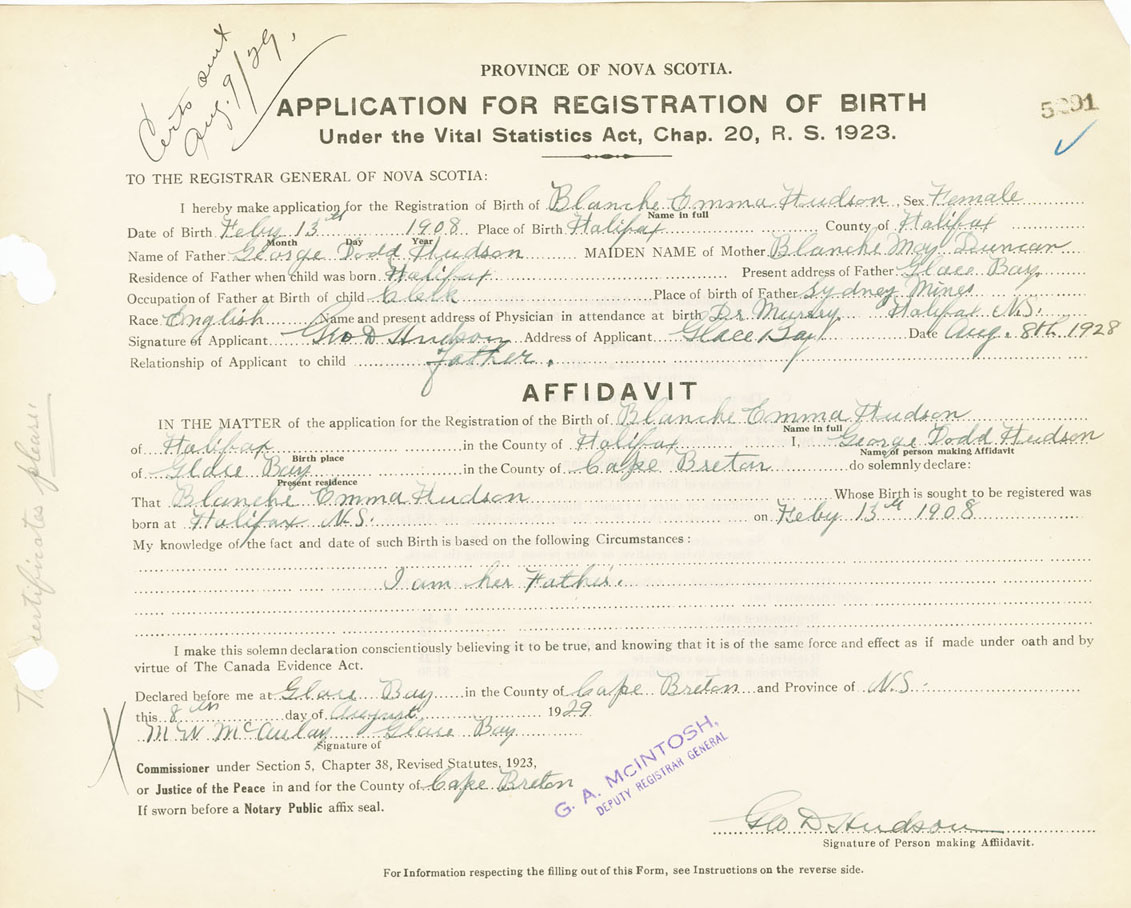 Certs sent
Aug. 9/29.
PROVINCE OF NOVA SCOTIA.
APPLICATION FOR REGISTRATION OF BIRTH
Under the Vital Statistics Act, Chap. 20, R. S. 1923.
TO THE REGISTRAR GENERAL OF NOVA SCOTIA:
I hereby make application for the Registration of Birth of Blanche Emma Hudson, Sex Female
Name in full
Date of Birth Feby 13th 1908 Place of Birth Halifax County of Halifax
Month Day Year
Name of Father George Dodd Hudson MAIDEN NAME of Mother Blanche May Duncan
Residence of Father when child was born Halifax Present address of Father Glace Bay
Occupation of Father at Birth of child Clerk Place of birth of Father Sydney Mines
Race English Name and present address of Physician in attendance at birth Dr Halifax N.S.
Signature of Applicant Geo D Hudson Address of Applicant Glace Bay Date Aug. 8th 1928
Relationship of Applicant to child Father.
AFFIDAVIT
IN THE MATTER of the application for the Registration of the Birth of Blanche Emma Hudson
Name in full
of Halifax in the County of Halifax I, George Dodd Hudson
Birth place Name of person making Affidavit
of Glace Bay in the County of Cape Breton do solemnly declare:
Present residence
That Blanche Emma Hudson Whose Birth is sought to be registered was
born at Halifax N.S. on Feby 13th 1908
My knowledge of the fact and date of such Birth is based on the following Circumstances:
I am her Father.
I make this solemn declaration conscientiously believing it to be true, and knowing that it is of the same force and effect as if made under oath and by
virtue of The Canada Evidence Act.
Declared before me at Glace Bay in the County of Cape Breton and Province of N.S.
this 8th day of August 1929
McAulay Glace Bay
Signature of
Commissioner under Section 5, Chapter 38, Revised Statutes, 1923,
or Justice of the Peace in and for the County of Cape Breton
If sworn before a Notary Public affix seal.
G. A. MCINTOSH,
DEPUTY REGISTRAR GENERAL
Geo D Hudson
Signature of Person making Affiidavit.
For Information respecting the filling out of this Form, see Instructions on the reverse side.
certificates please